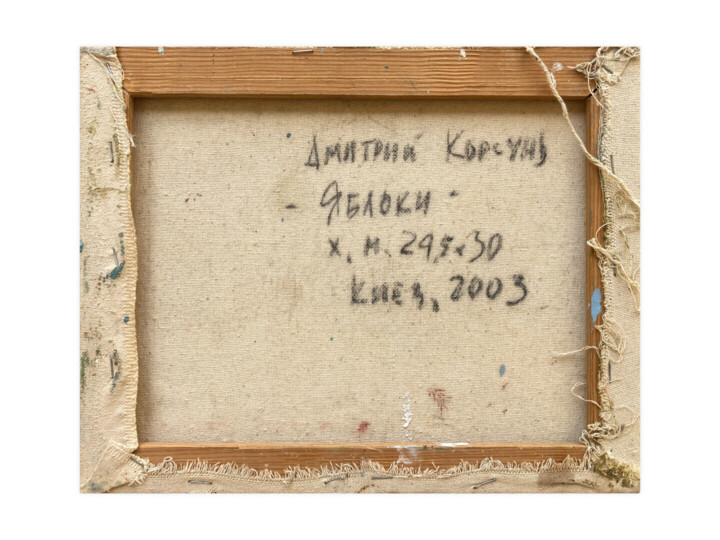 Дмитрий Корсунь
- Яблоки -
х, м. 24,5х30
Киев, 2003